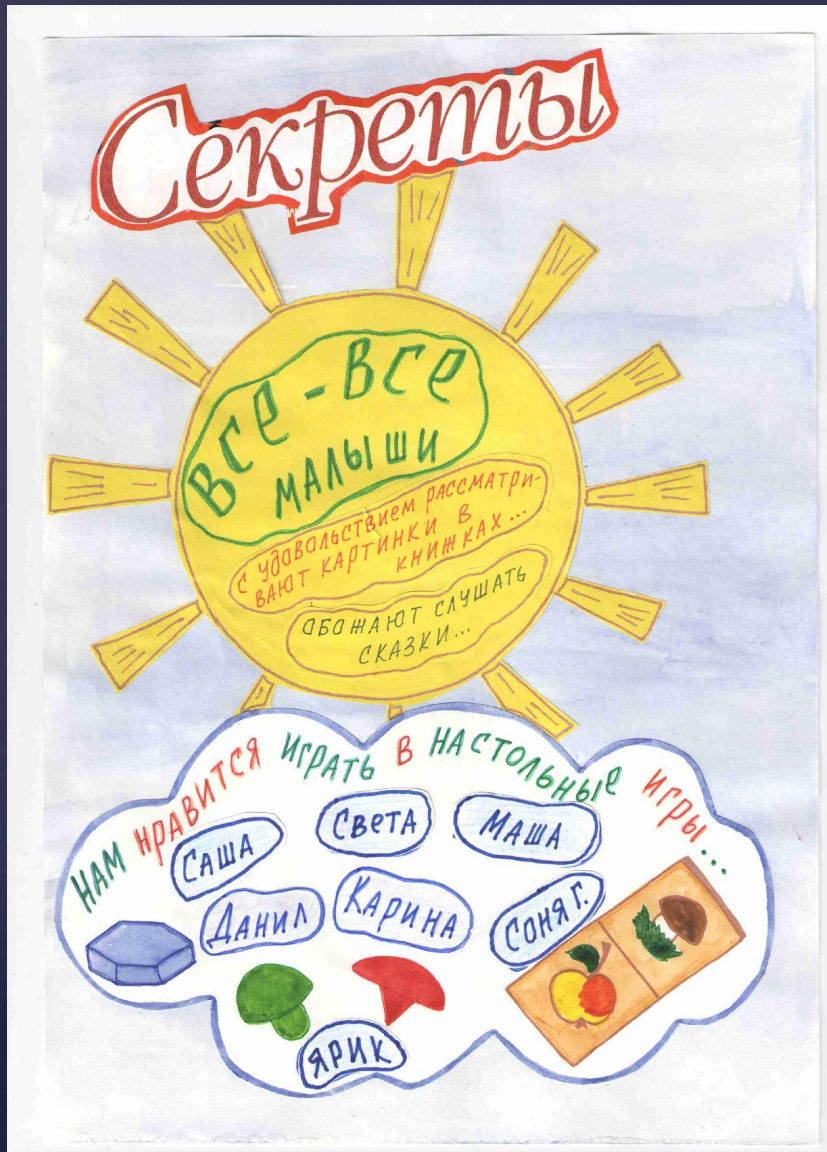 Секреты
ВСЕ-ВСЕ
МАЛЫШИ
С УДОВОЛЬСТВИЕМ РАССМАТРИ-
ВАЮТ КАРТИНКИ В
КНИЖКАХ...
ОБОЖАЮТ СЛУШАТЬ
СКАЗКИ...
НАМ НРАВИТСЯ ИГРАТЬ В НАСТОЛЬНЫЕ ИГРЫ...
САША
СВЕТА
МАША
ДАНИЛ
КАРИНА
СОНЯ Г.
ЯРИК